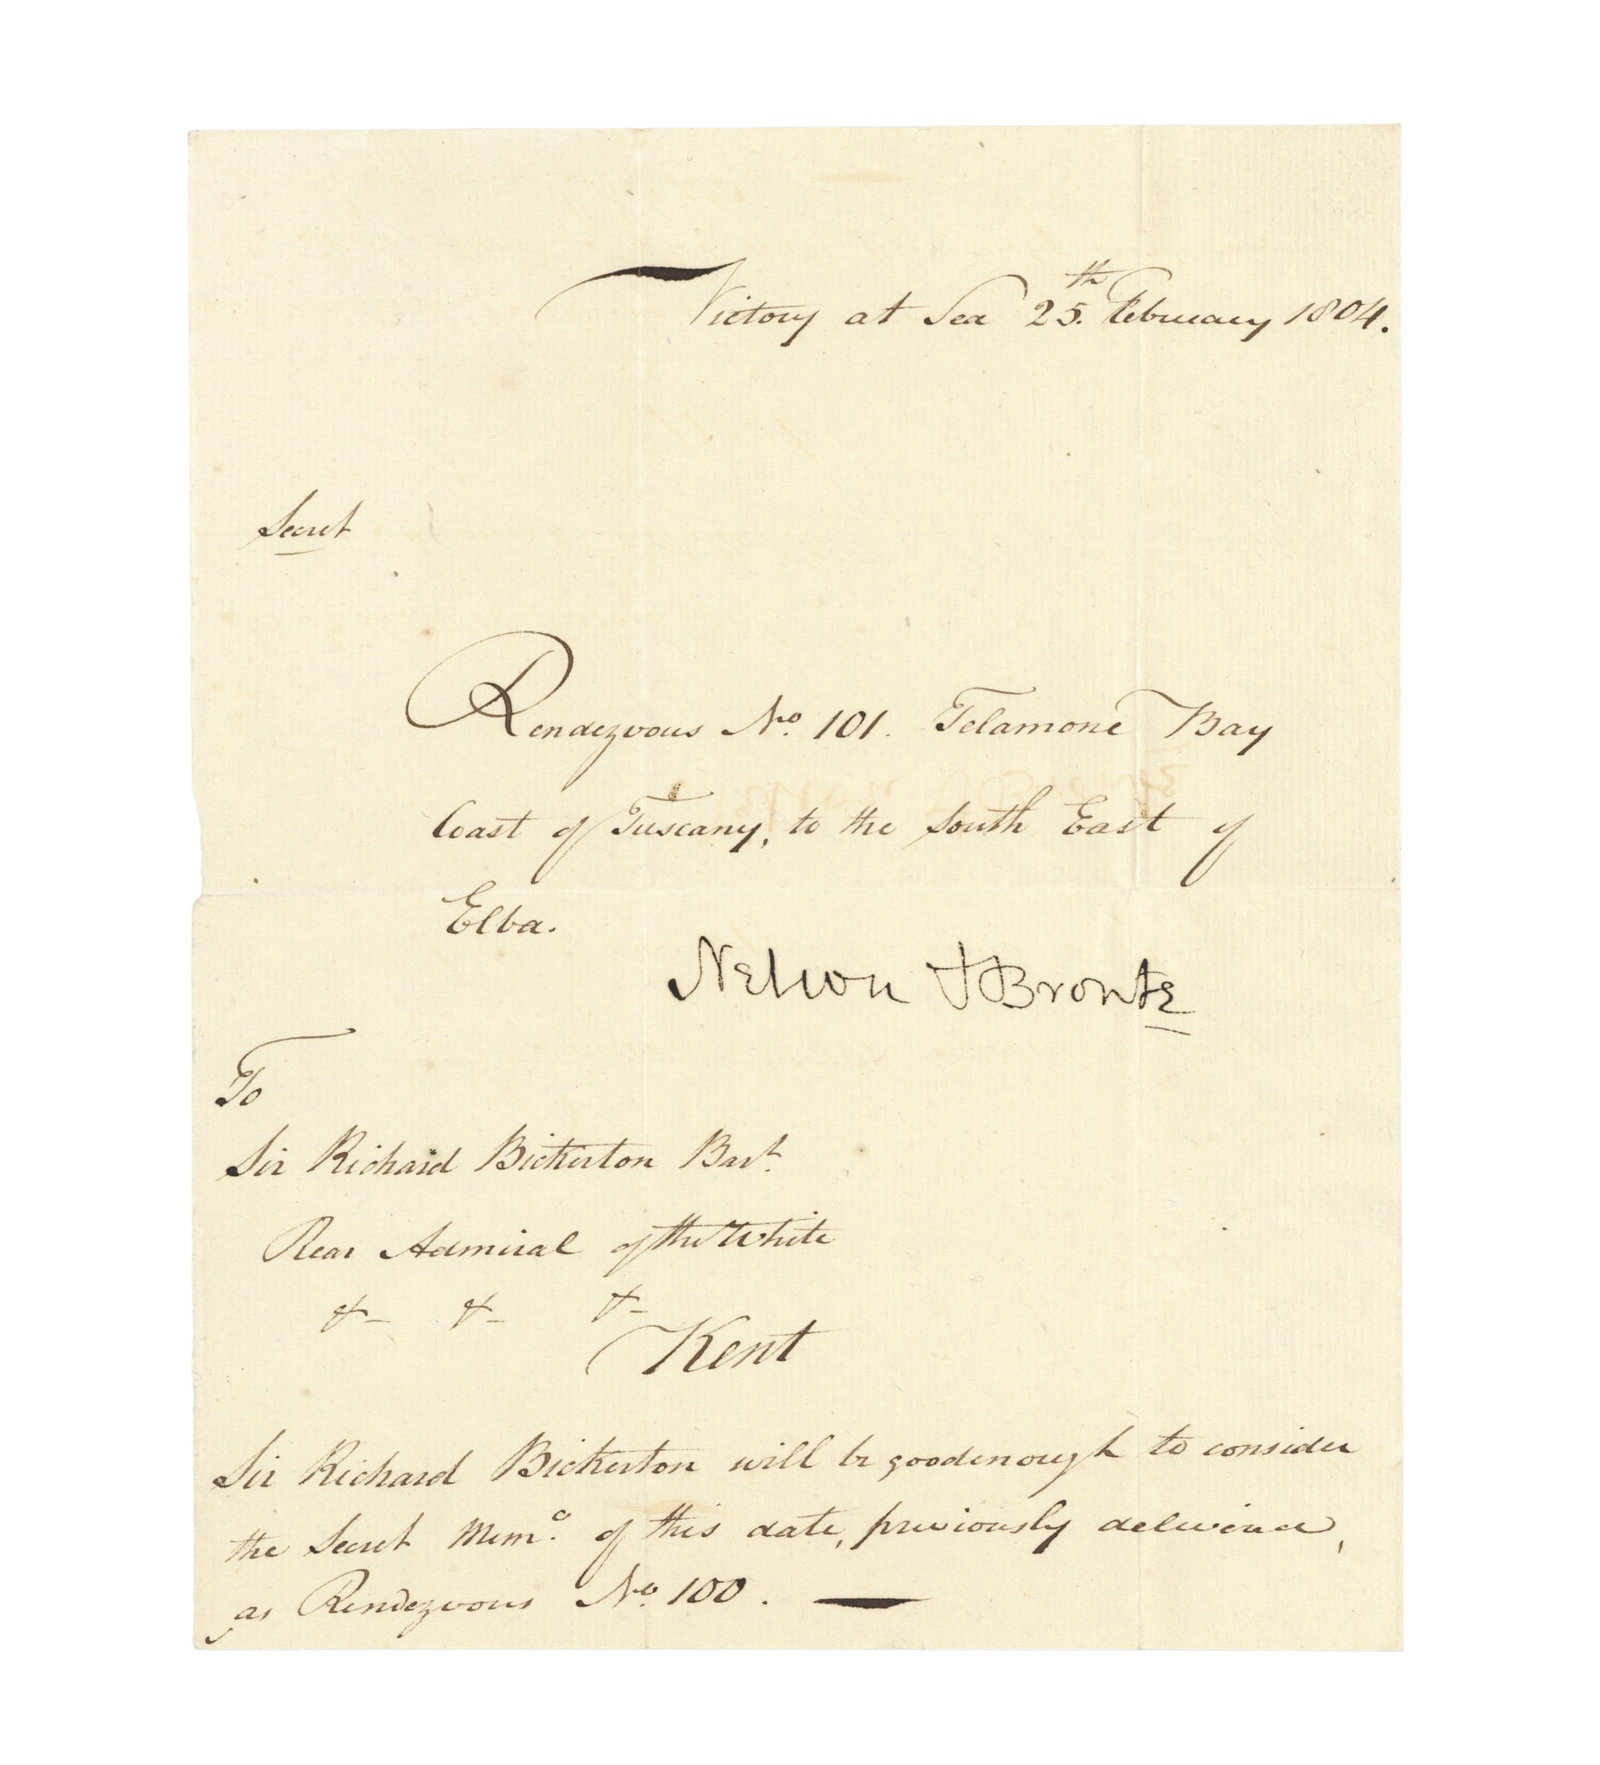 Victory at Sea 25th. February 1804.
Secret
Rendezvous No. 101. Telamone Bay
Coast of Tuscany, to the South East of
Elba.
Nelson & Bronte
To
Sir Richard Bickerton Bart.
Rear Admiral of the White
&- &- &-
Kent
Sir Richard Bickerton will be good enough to consider
the Secret Memo. of this date, previously delivered,
as Rendezvous No. 100.